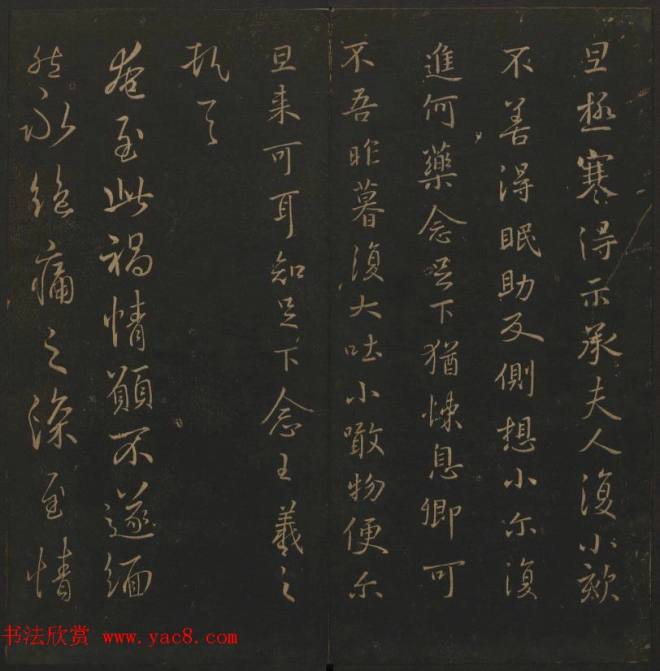 旦極寒得示承夫人復小欬
不善得眠助反側想小尒復
進何藥念足下猶悚息卿可
不吾昨暮復大吐小噉物便尒
旦來可耳知足下念王羲之
頓首
奄至此禍情願不遂緬
然永絕痛之深至情
书法欣赏 www.yac8.com